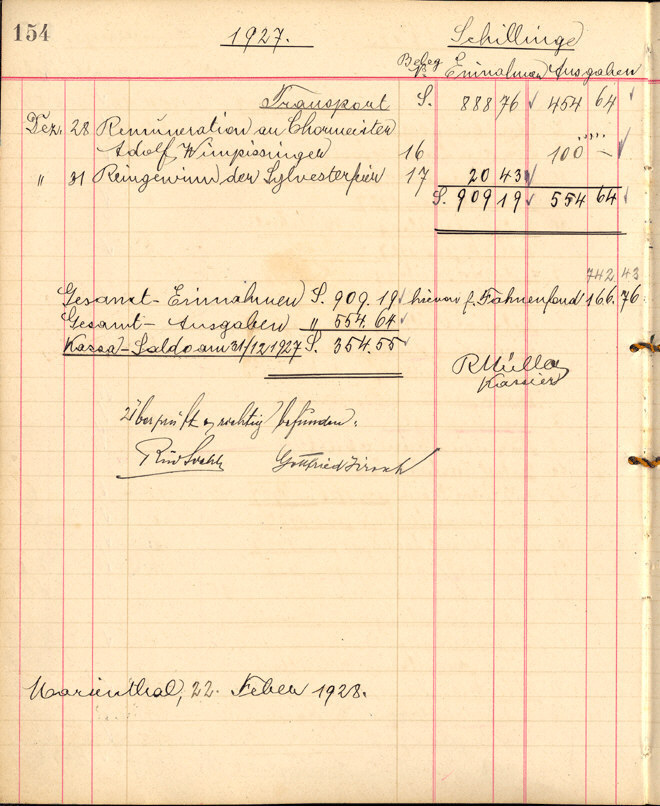 154
1927. Schillinge
Beleg Nr. Einnahmen Ausgaben
Transport S. 888 76 454 64
Dez. 28 Remuneration an Chormeister
Adolf Wimpissinger 16 100 –
" 31 Reingewinn der Sylvesterfeier 17 20 43
S. 909 19 554 64
742,43
Gesamt-Einnahmen S. 909.19 hievon f. Fahnenfond 166.76
Gesamt-Ausgaben " 554.64
Kassa-Saldo am 31/12 1927 S. 354.55
R Müller
Kassier
Überprüft u. richtig befunden:
Gottfried
Marienthal, 22. Feber 1928.